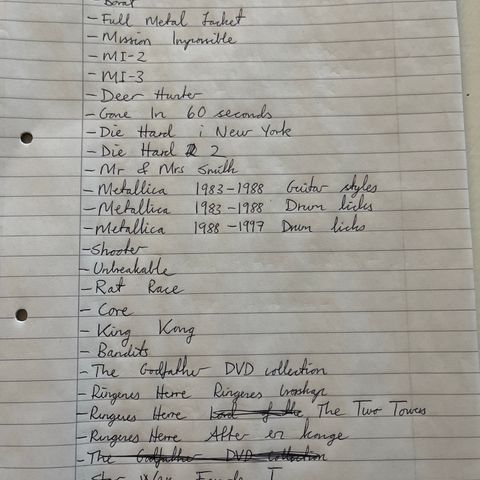 - Borat
- Full Metal Jacket
- Mission Impossible
- MI-2
- MI-3
- Deer Hunter
- Gone In 60 seconds
- Die Hard i New York
- Die Hard 2
- Mr & Mrs Smith
- Metallica 1983-1988 Guitar styles
- Metallica 1983-1988 Drum licks
- Metallica 1988-1997 Drum licks
- Shooter
- Unbreakable
- Rat Race
- Core
- King Kong
- Bandits
- The Godfather DVD collection
- Ringenes Herre Ringenes
- Ringenes Herre Lord of the The Two Towers
- Ringenes Herre Atter er konge
- The Godfather DVD collection
Star Wars Episode I